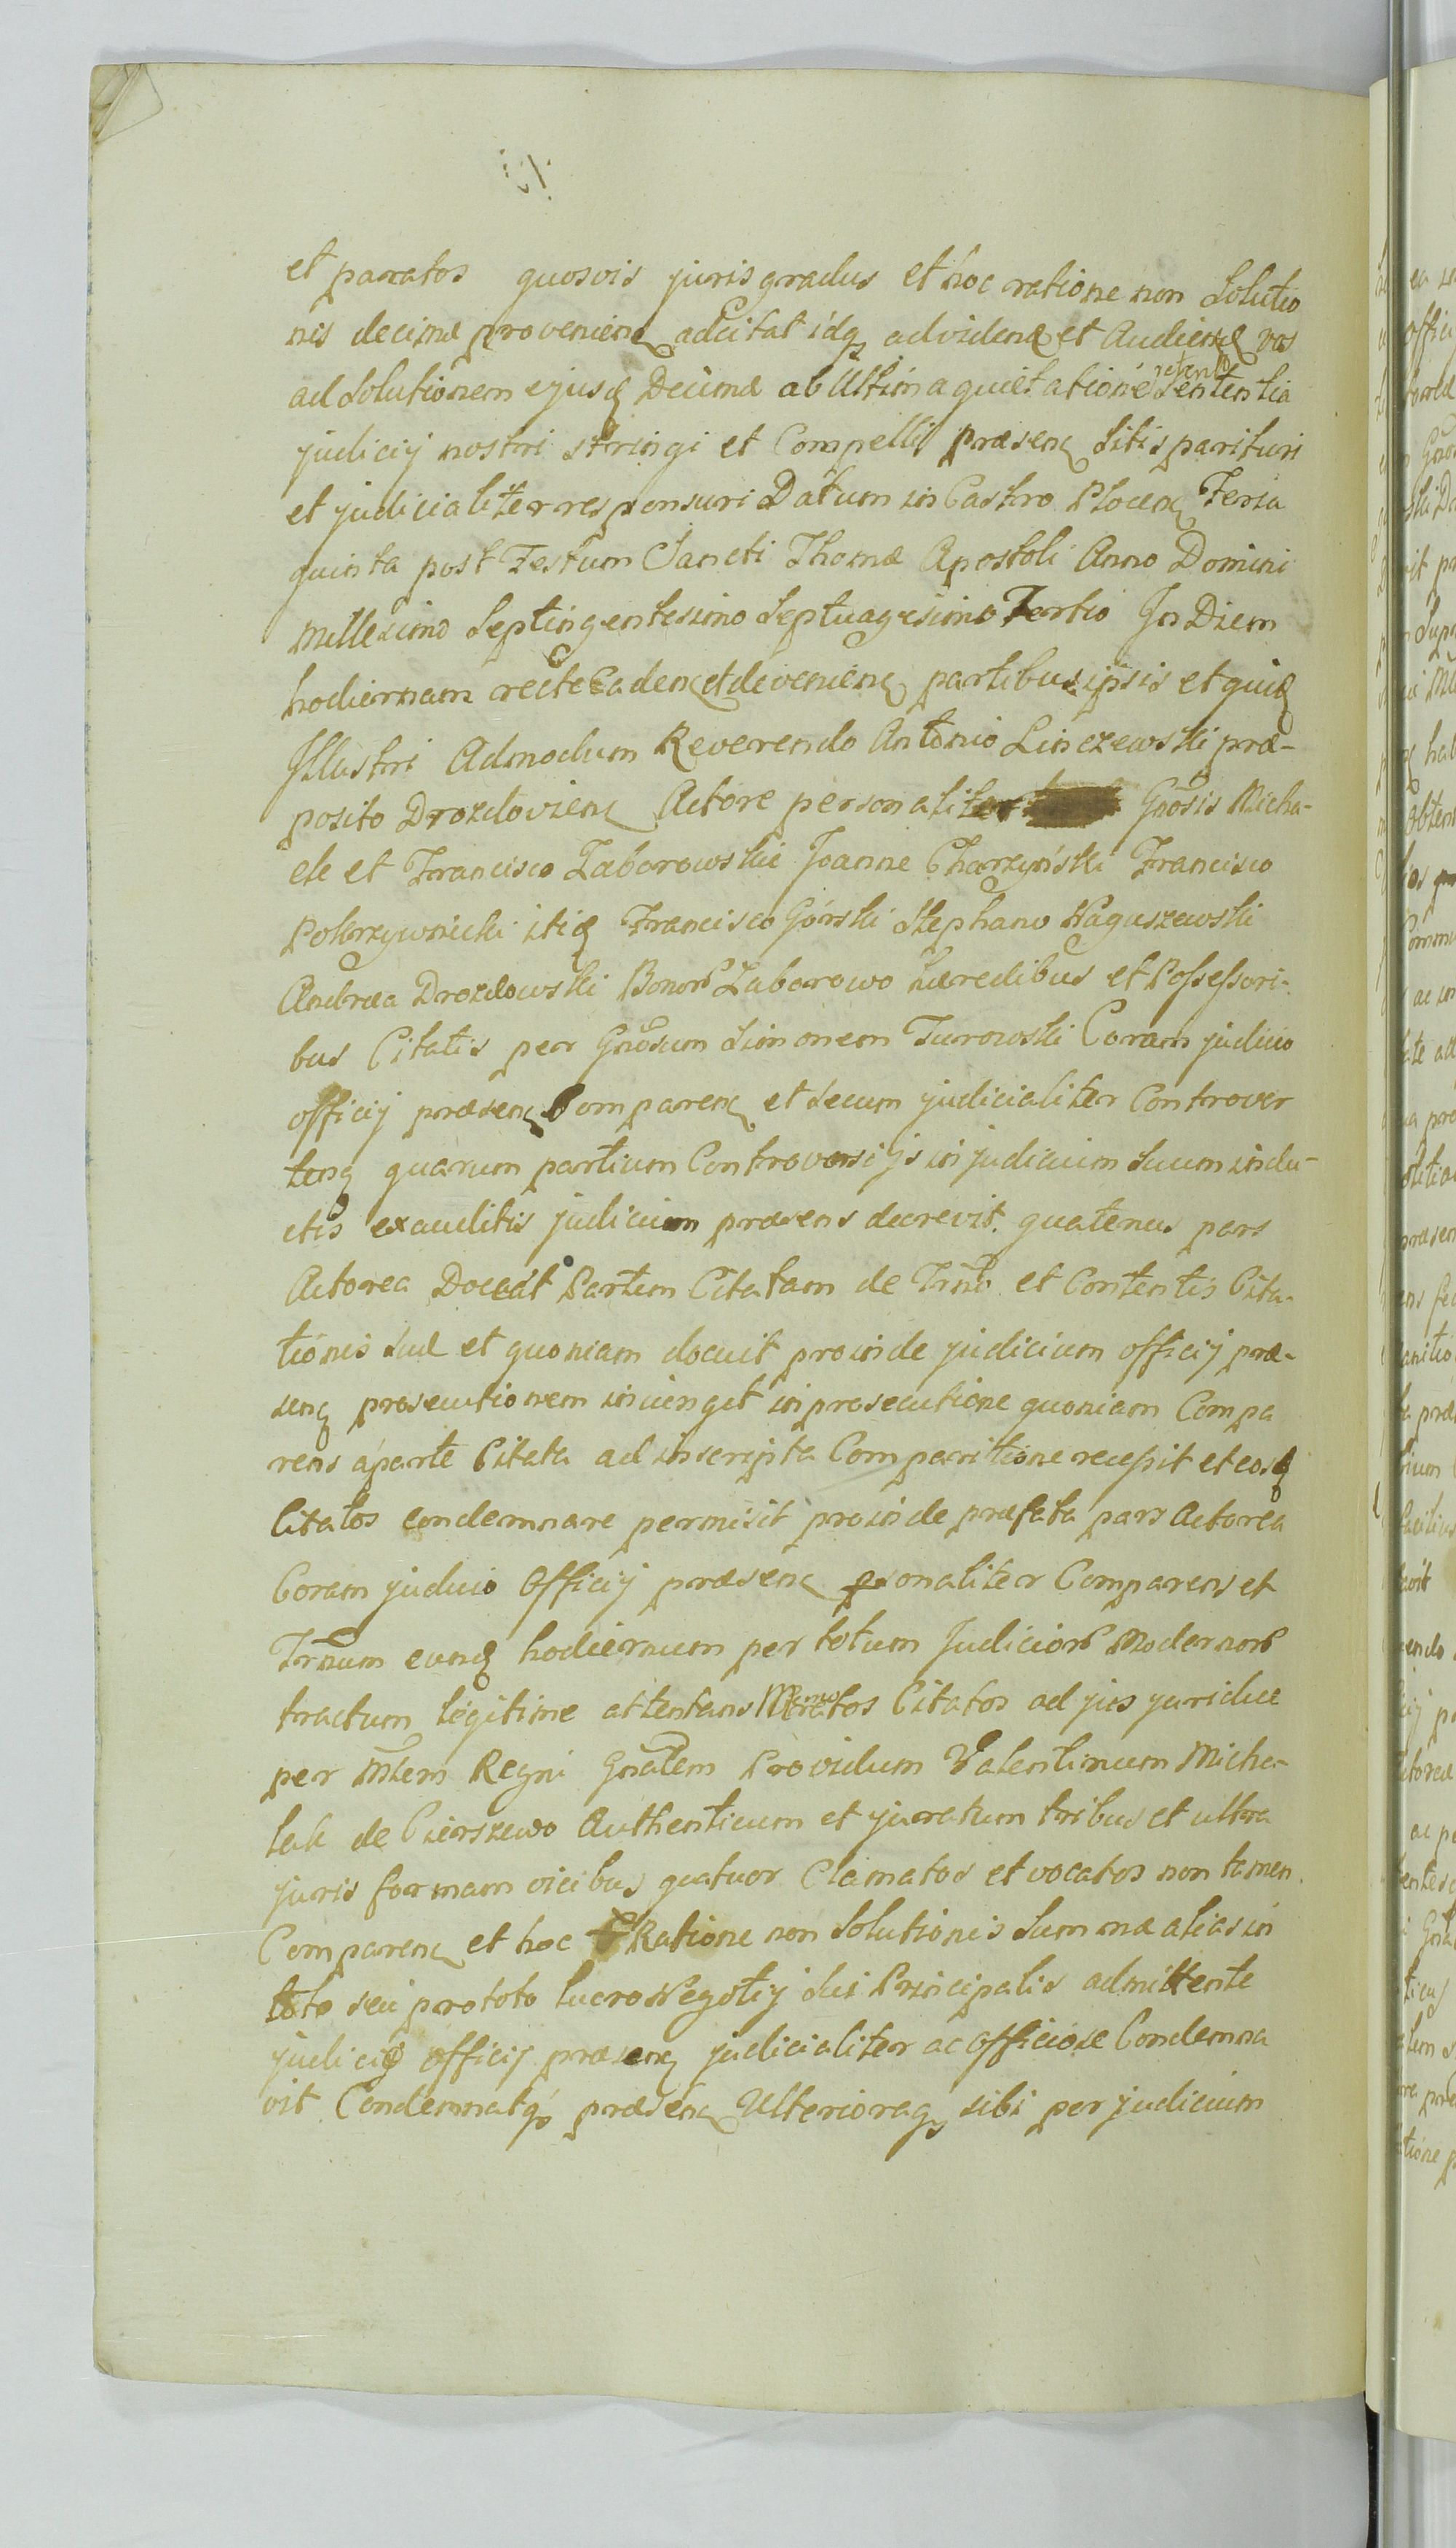 et paratos quosvis juris gradus et hoc ratione non Solutio
nis decimæ provenienꝭ adcitat idqꝫ ad videnꝭ et Audienꝭ vos
ad Solutionem ejusꝭ Decimæ ab Ultima quietatione retenta Sententia
judicij nostri stringi et Compelli præsenꝭ Sitis parituri
et judicialiter responsuri Datum in Castro Plocenꝭ Feria
quinta post Festum Sancti Thomæ Apostoli Anno Domini
millesimo Septingentesimo Septuagesimo Tertio In Diem
hodiernam recte Cadenꝭ et devenienꝭ partibus ipsis et quidꝭ
Illustri Admodum Reverendo Antonio Linczewski præ-
posito Drozdovienꝭ Actore personaliter Gnosis Micha-
ele et Francisco Zaborowskie Joanne Charzyński Francisco
Pokrzywnicki itiꝭ Francisco Górski Stephano Naguszewski
Andræa Drozdowski Bonorꝭ Zaborowo hæredibus et Possessori-
bus Citatis per Gnosum Simonem Turowski Coram judicio
officij præsenꝭ Comparenꝭ et Secum judicialiter Controver
tenꝭ quarum partium Controversijs in judicium Suum indu-
ctis exauditis judicium præsens decrevit quatenus pars
Actorea Doceat Partem Citatam de Trno et Contentis Cita-
tionis Suæ et quoniam docuit proinde judicium officij præ-
senꝭ prosecutionem injungit in prosecutione quoniam Compa
rens a parte Citata ad inscripta Comparitione recessit et eosꝭ
Citatos condemnare permisit proinde præfata pars Actorea
Coram judicio Officij præsenꝭ psonaliter Comparens et
Trnum eunꝭ hodiernum per totum Judiciorꝭ Modernorꝭ
tractum legitime attentans Citatos ad jus juridice
per Mlem Regni Gnalem Providum Valentinum Micha-
lak de Cierszewo Authenticum et juratum tribus et ultra
juris formam vicibus quatuor Clamatos et vocatos non tamen
Comparenꝭ et hoc Ratione non Solutionis Summæ alias in
toto seu pro toto lucro Negotij Sui Principalis admittente
judicio officij præsenꝭ judicialiter ac officiose Condemna
vit Condemnatqꝫ præsenꝭ Ulterioraqꝫ sibi per judicium